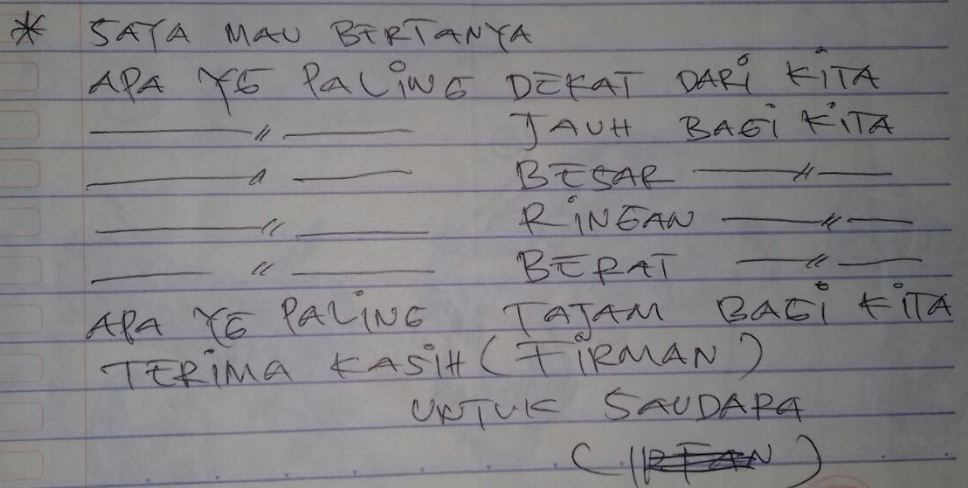 * SAYA MAU BERTANYA
APA YG PALING DEKAT DARI KITA
—〃— JAUH BAGI KITA
—〃— BESAR —〃—
—〃— RINGAN —〃—
—〃— BERAT —〃—
APA YG PALING TAJAM BAGI KITA
TERIMA KASIH (FIRMAN)
UNTUK SAUDARA
( )